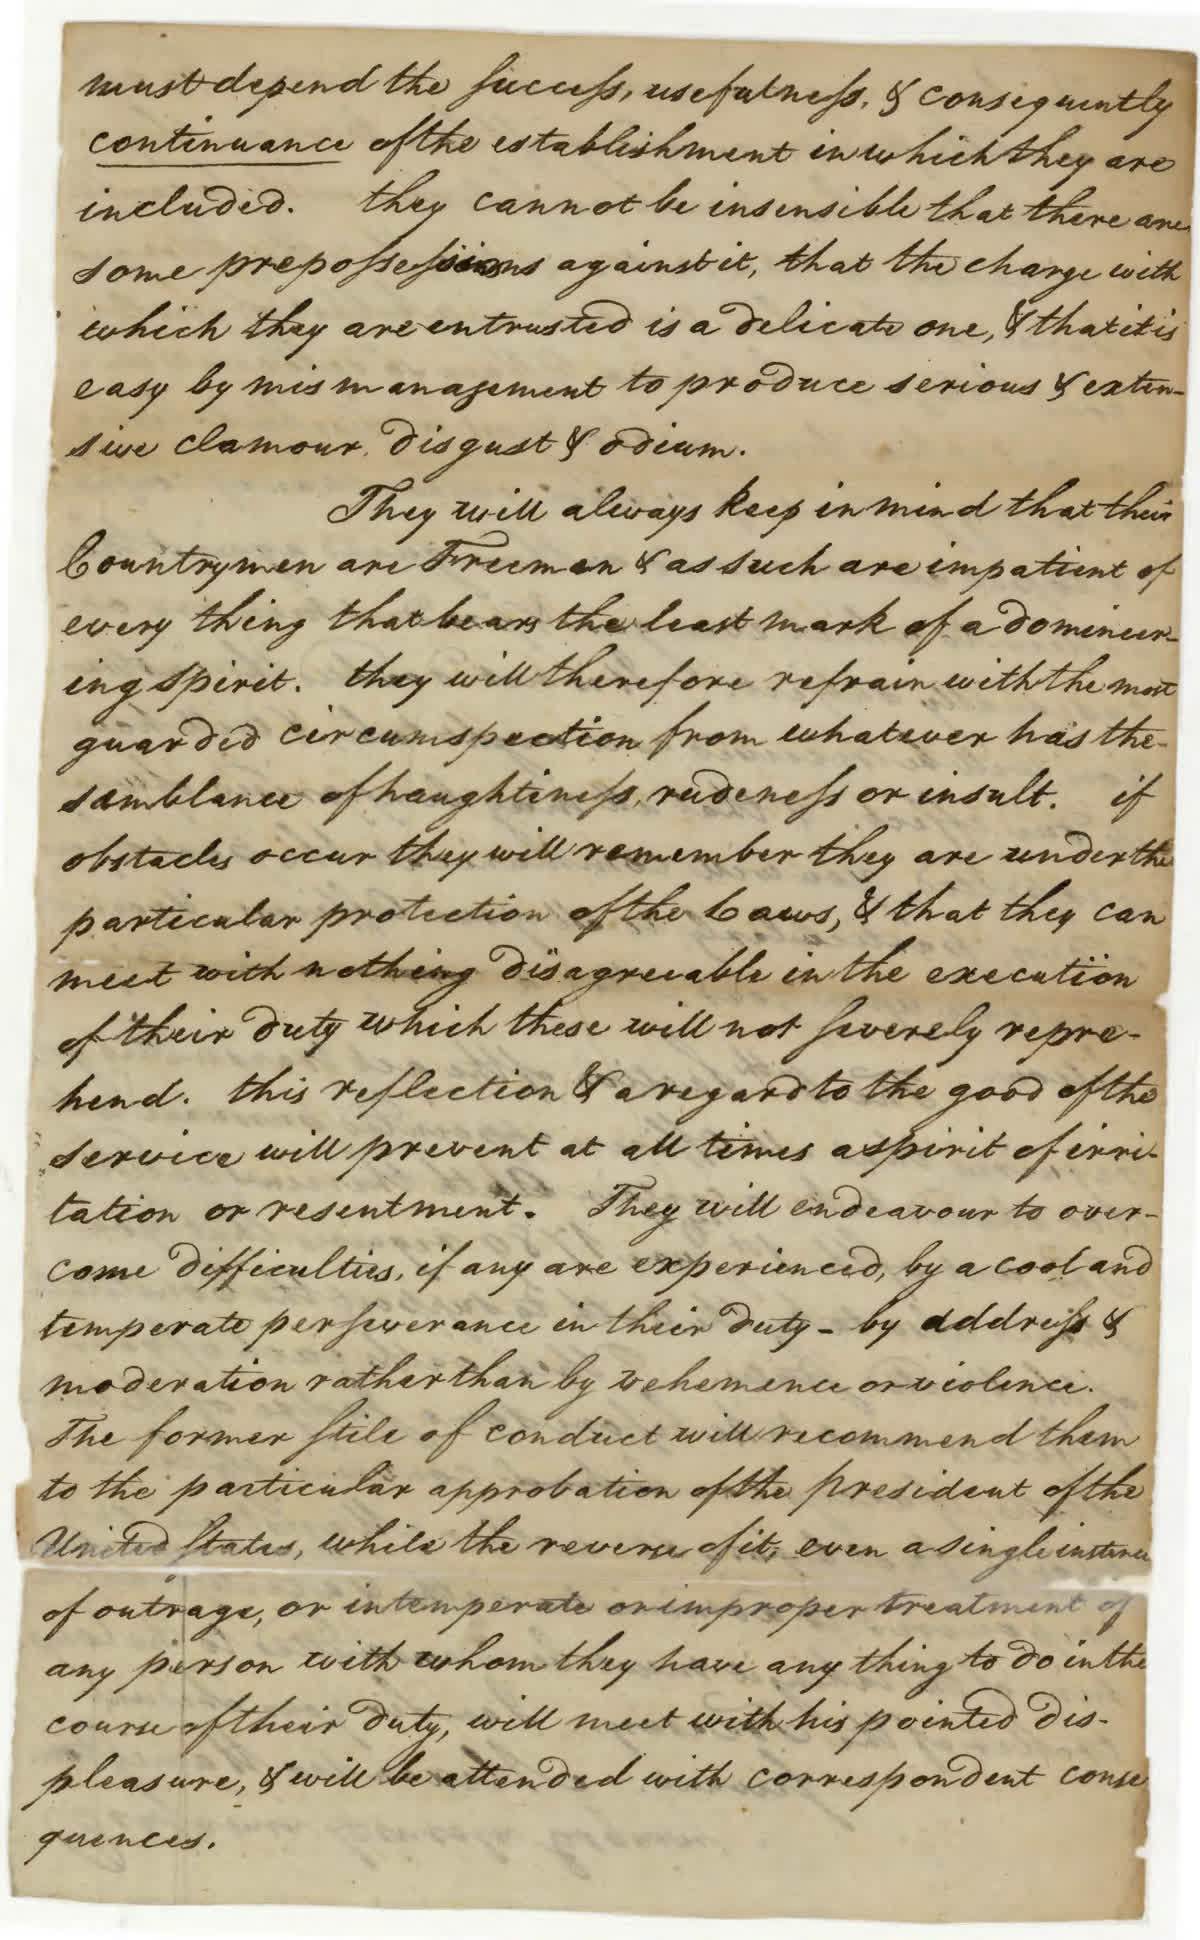 must depend the success, usefulness, & consequently
continuance of the establishment in which they are
included. they cannot be insensible that there are
some prepossessions against it, that the charge with
which they are entrusted is a delicate one, & that it is
easy by mismanagement to produce serious & exten-
sive clamour, disgust & odium.
They will always keep in mind that their
Countrymen are Freemen & as such are impatient of
every thing that bears the least mark of a domineer-
ing spirit. they will therefore refrain with the most
guarded circumspection from whatever has the
semblance of haughtiness, rudeness or insult. if
obstacles occur they will remember they are under the
particular protection of the Laws, & that they can
meet with nothing disagreeable in the execution
of their duty which these will not severely repre-
hend. this reflection & a regard to the good of the
service will prevent at all times a spirit of irri-
tation or resentment. They will endeavour to over-
come difficulties, if any are experienced, by a cool and
temperate perseverance in their duty - by address &
moderation rather than by vehemence or violence.
The former stile of conduct will recommend them
to the particular approbation of the president of the
United States, while the reverse of it, even a single instance
of outrage, or intemperate or improper treatment of
any person with whom they have any thing to do in the
course of their duty, will meet with his pointed dis-
pleasure, & will be attended with correspondent conse
quences.